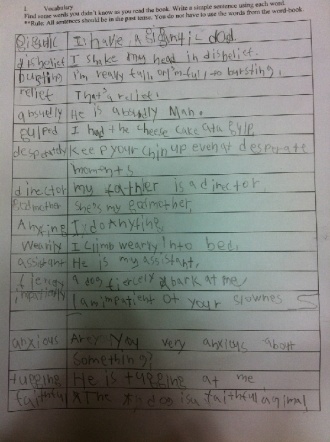 1 Vocabulary
Find some words you didn't know as you read the book. Write a simple sentence using each word.
**Rule: All sentences should be in the past tense. You do not have to use the words from the word-book.
I have a gigantic dad.
disbelief I shake my head in disbelief.
bursting I'm really full, I'm full to bursting.
relief That's a relief.
absurdly He is absurdly Man.
gulped I had the cheese cake at a gulp
desperately Keep your chin up even at desperate
moments
director my father is a director
godmother She's my godmother.
Anything I do Anything
Wearily I climb wearily into bed.
assistant He is my assistant.
fiercely a dog fiercely bark at me
impatiently I am impatient of your slownes s
anxious Are you very anxious about
Something?
tugging He is tugging at me
faithful The dog is a faithful animal